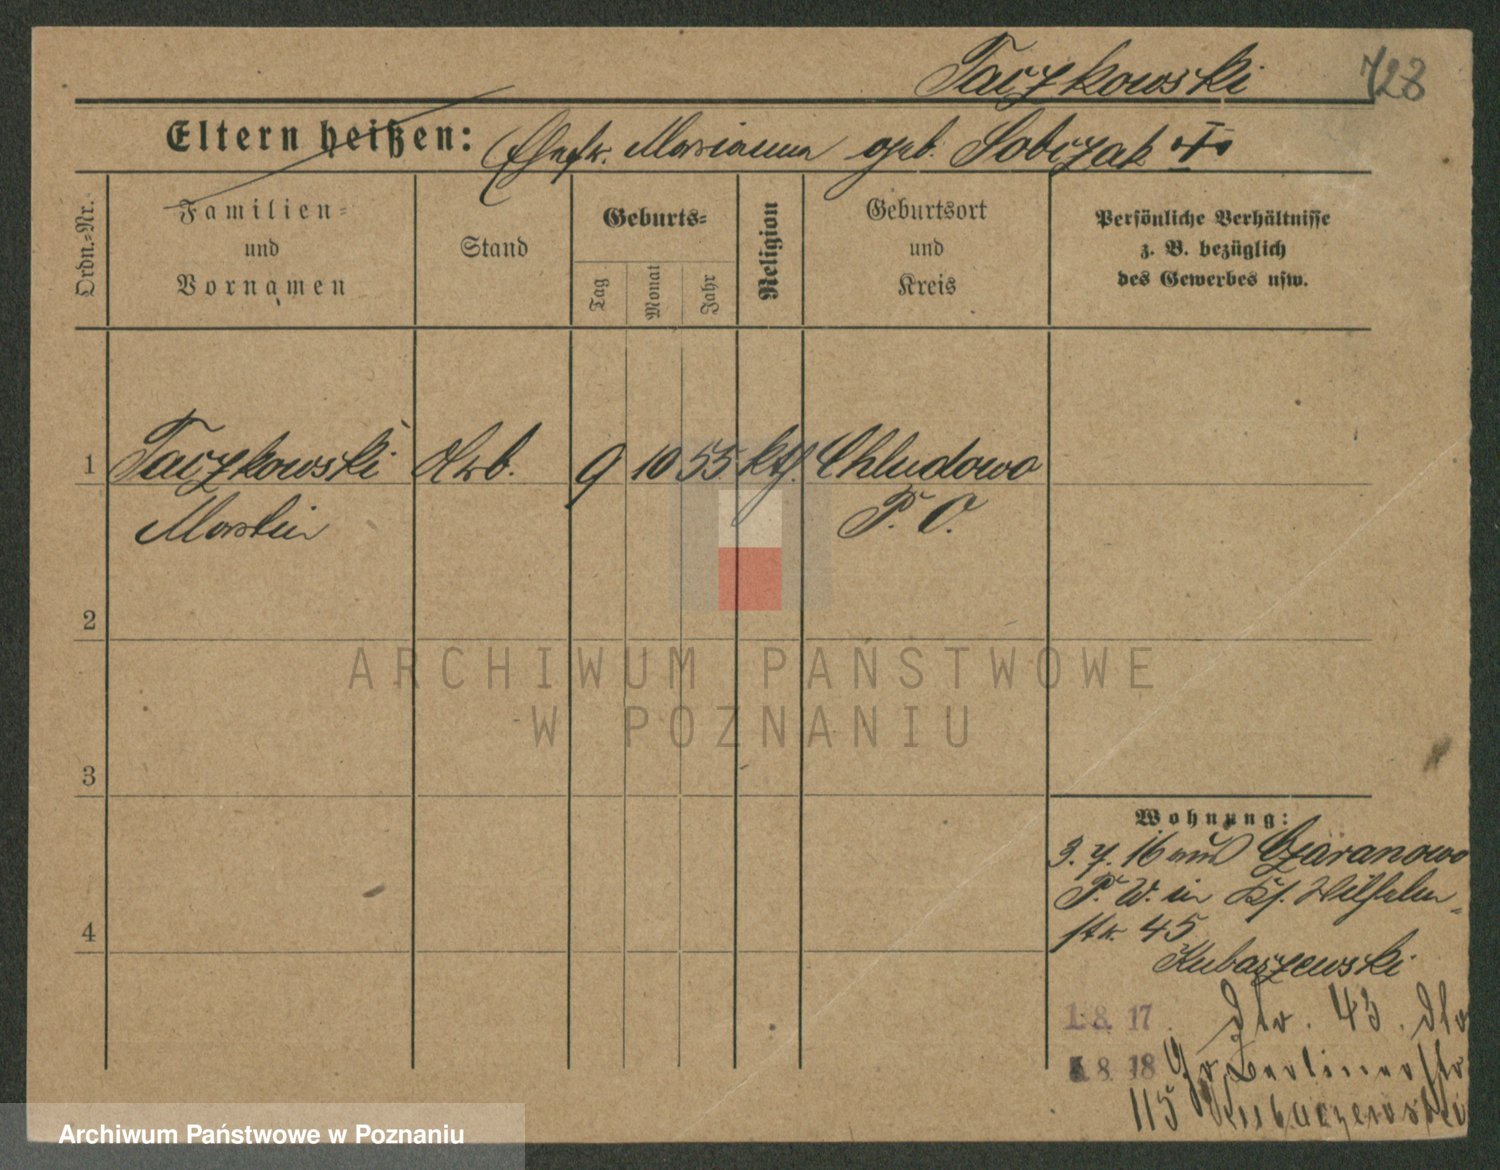 Taczkowski 728
Eltern heißen: Ehefr. Marianna geb. Sobczak
Ordn.=Nr.
Familien=
und
Vornamen
Stand
Geburts=
Tag
Monat
Jahr
Religion
Geburtsort
und
Kreis
Persönliche Verhältnisse
z. B. bezüglich
des Gewerbes usw.
1 Taczkowski Arb. 9 10 55 kth. Chludowo
Martin P. O.
2
ARCHIWUM PAŃSTWOWE
W POZNANIU
3
4
Wohnung:
3. 7. 16 aus Czaranowo
P. W. in Wilhelm-
str. 45
Kubaszewski
1. 8. 17 dto. 43. dto
8. 18 Gr Berlinerstr
115 Kubaczewski
Archiwum Państwowe w Poznaniu